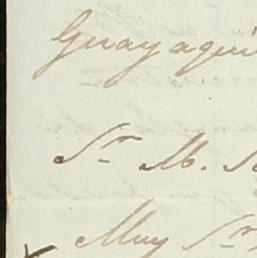 Guayaqui
Sr. M. S
Muy Sr.